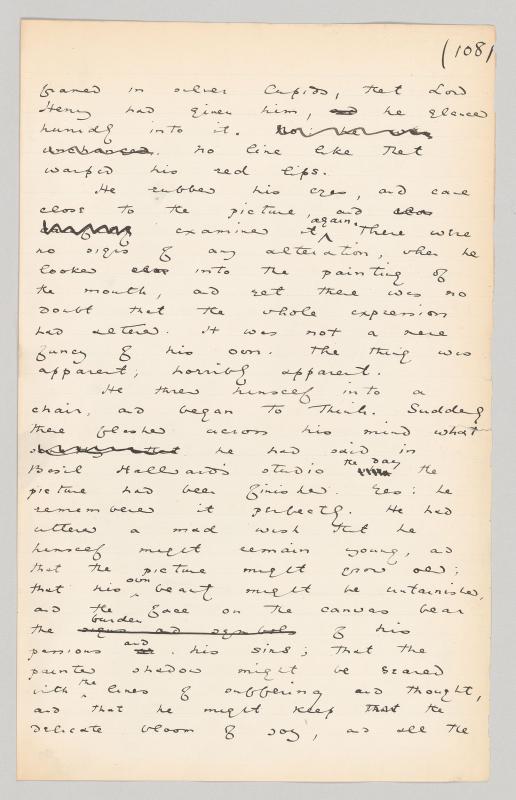 (108)
framed in silver Cupids, that Lord
Henry had given him, and he glanced
hurriedly into it.
unchanged. No line like that
warped his red lips.
He rubbed his eyes, and came
close to the picture, and
again.
examined it. There were
no signs of any alteration, when he
looked close into the painting of
the mouth, and yet there was no
doubt that the whole expression
had altered. It was not a mere
fancy of his own. The thing was
apparent, horribly apparent.
He threw himself into a
chair, and began to think. Suddenly
there flashed across his mind what
he had said in
Basil Hallward's studio the day the
picture had been finished. Yes: he
remembered it perfectly. He had
uttered a mad wish that he
himself might remain young, and
that the picture might grow old;
own
that his beauty might be untarnished,
and the face on the canvas bear
burden
the signs and symbols of his
and
passions or his sins; that the
painted shadow might be seared
with the lines of suffering and thought,
and that he might keep that the
delicate bloom of joy, and all the